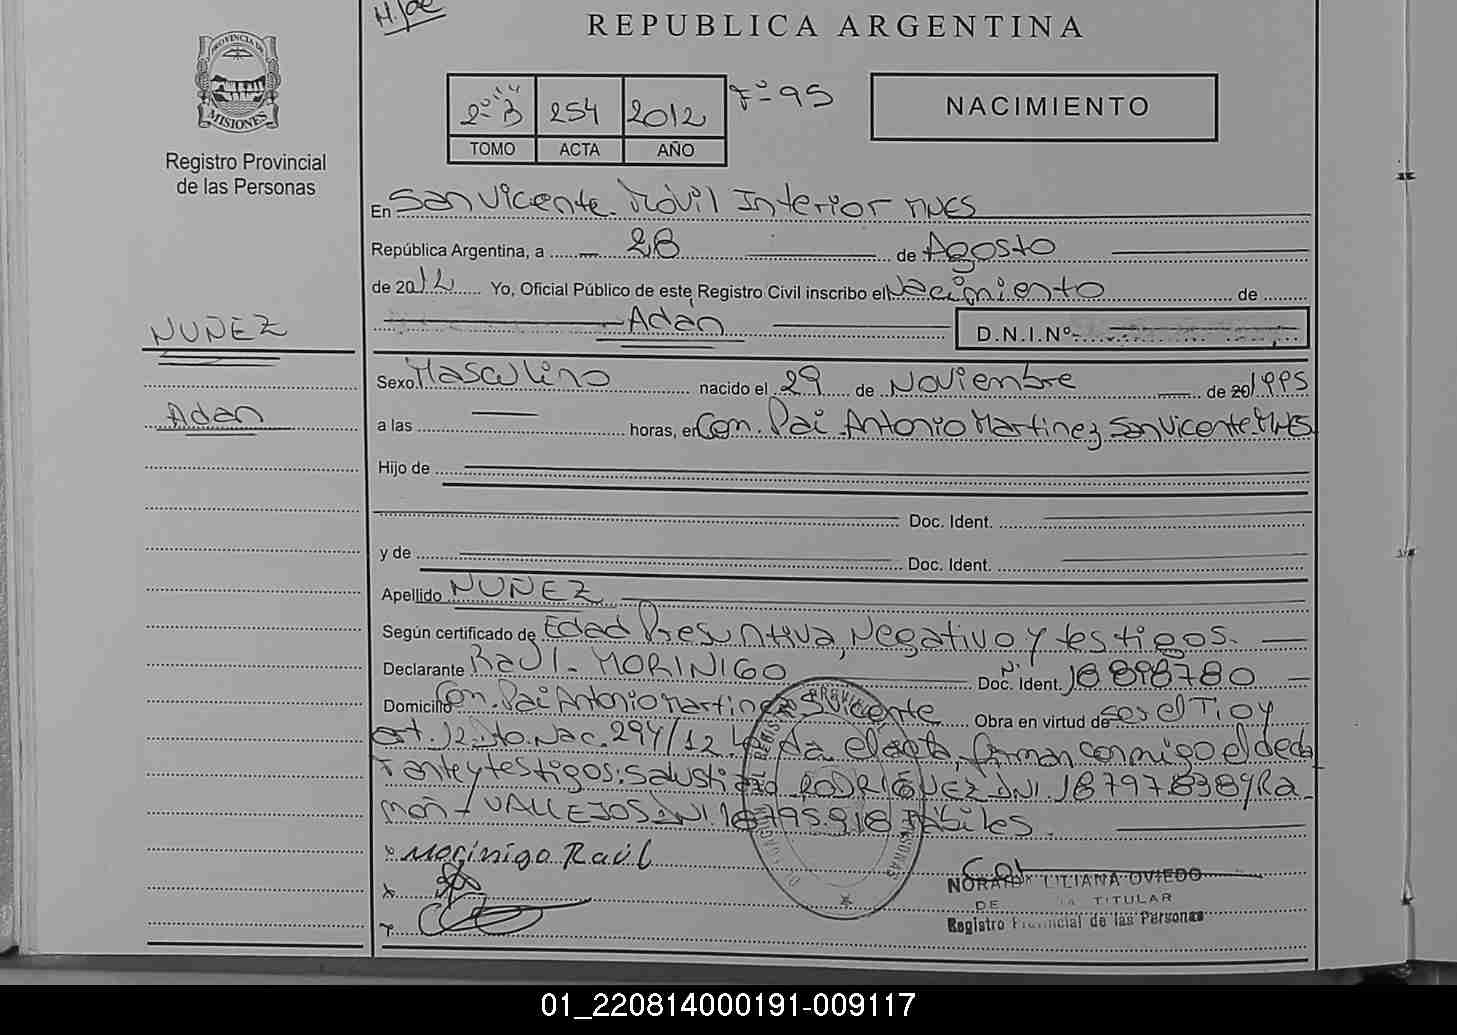 REPUBLICA ARGENTINA
PROVINCIA DE
MISIONES
Registro Provincial
de las Personas
2º B 254 2012 Fº 95
TOMO ACTA AÑO
NACIMIENTO
En San Vicente Móvil Interior MNES
República Argentina, a 28 de Agosto
de 2012 Yo, Oficial Público de este Registro Civil inscribo el Nacimiento de
Adán D.N.I.Nº
NUÑEZ
Adán
Sexo Masculino nacido el 29 de Noviembre de 20 1995
a las horas, en Com. Pai Antonio Martinez San Vicente MNES
Hijo de
Doc. Ident.
y de Doc. Ident.
Apellido NUÑEZ
Según certificado de Edad Presuntiva, Negativo y testigos.
Declarante Raúl MORINIGO Doc. Ident. Nº 18898780
Domicilio Com. Pai Antonio Martinez S Vicente Obra en virtud de ser el Tio y
art. 12 Dto. Nac. 294/12. Leída el acta, firman conmigo el decla
rante y testigos: Salustiano RODRIGUEZ DNI. 18797838 y Ra
món VALLEJOS DNI 18795918 Hábiles.
Morinigo Raúl
LILIANA OVIEDO
TITULAR
Registro Provincial de las Personas
01_220814000191-009117